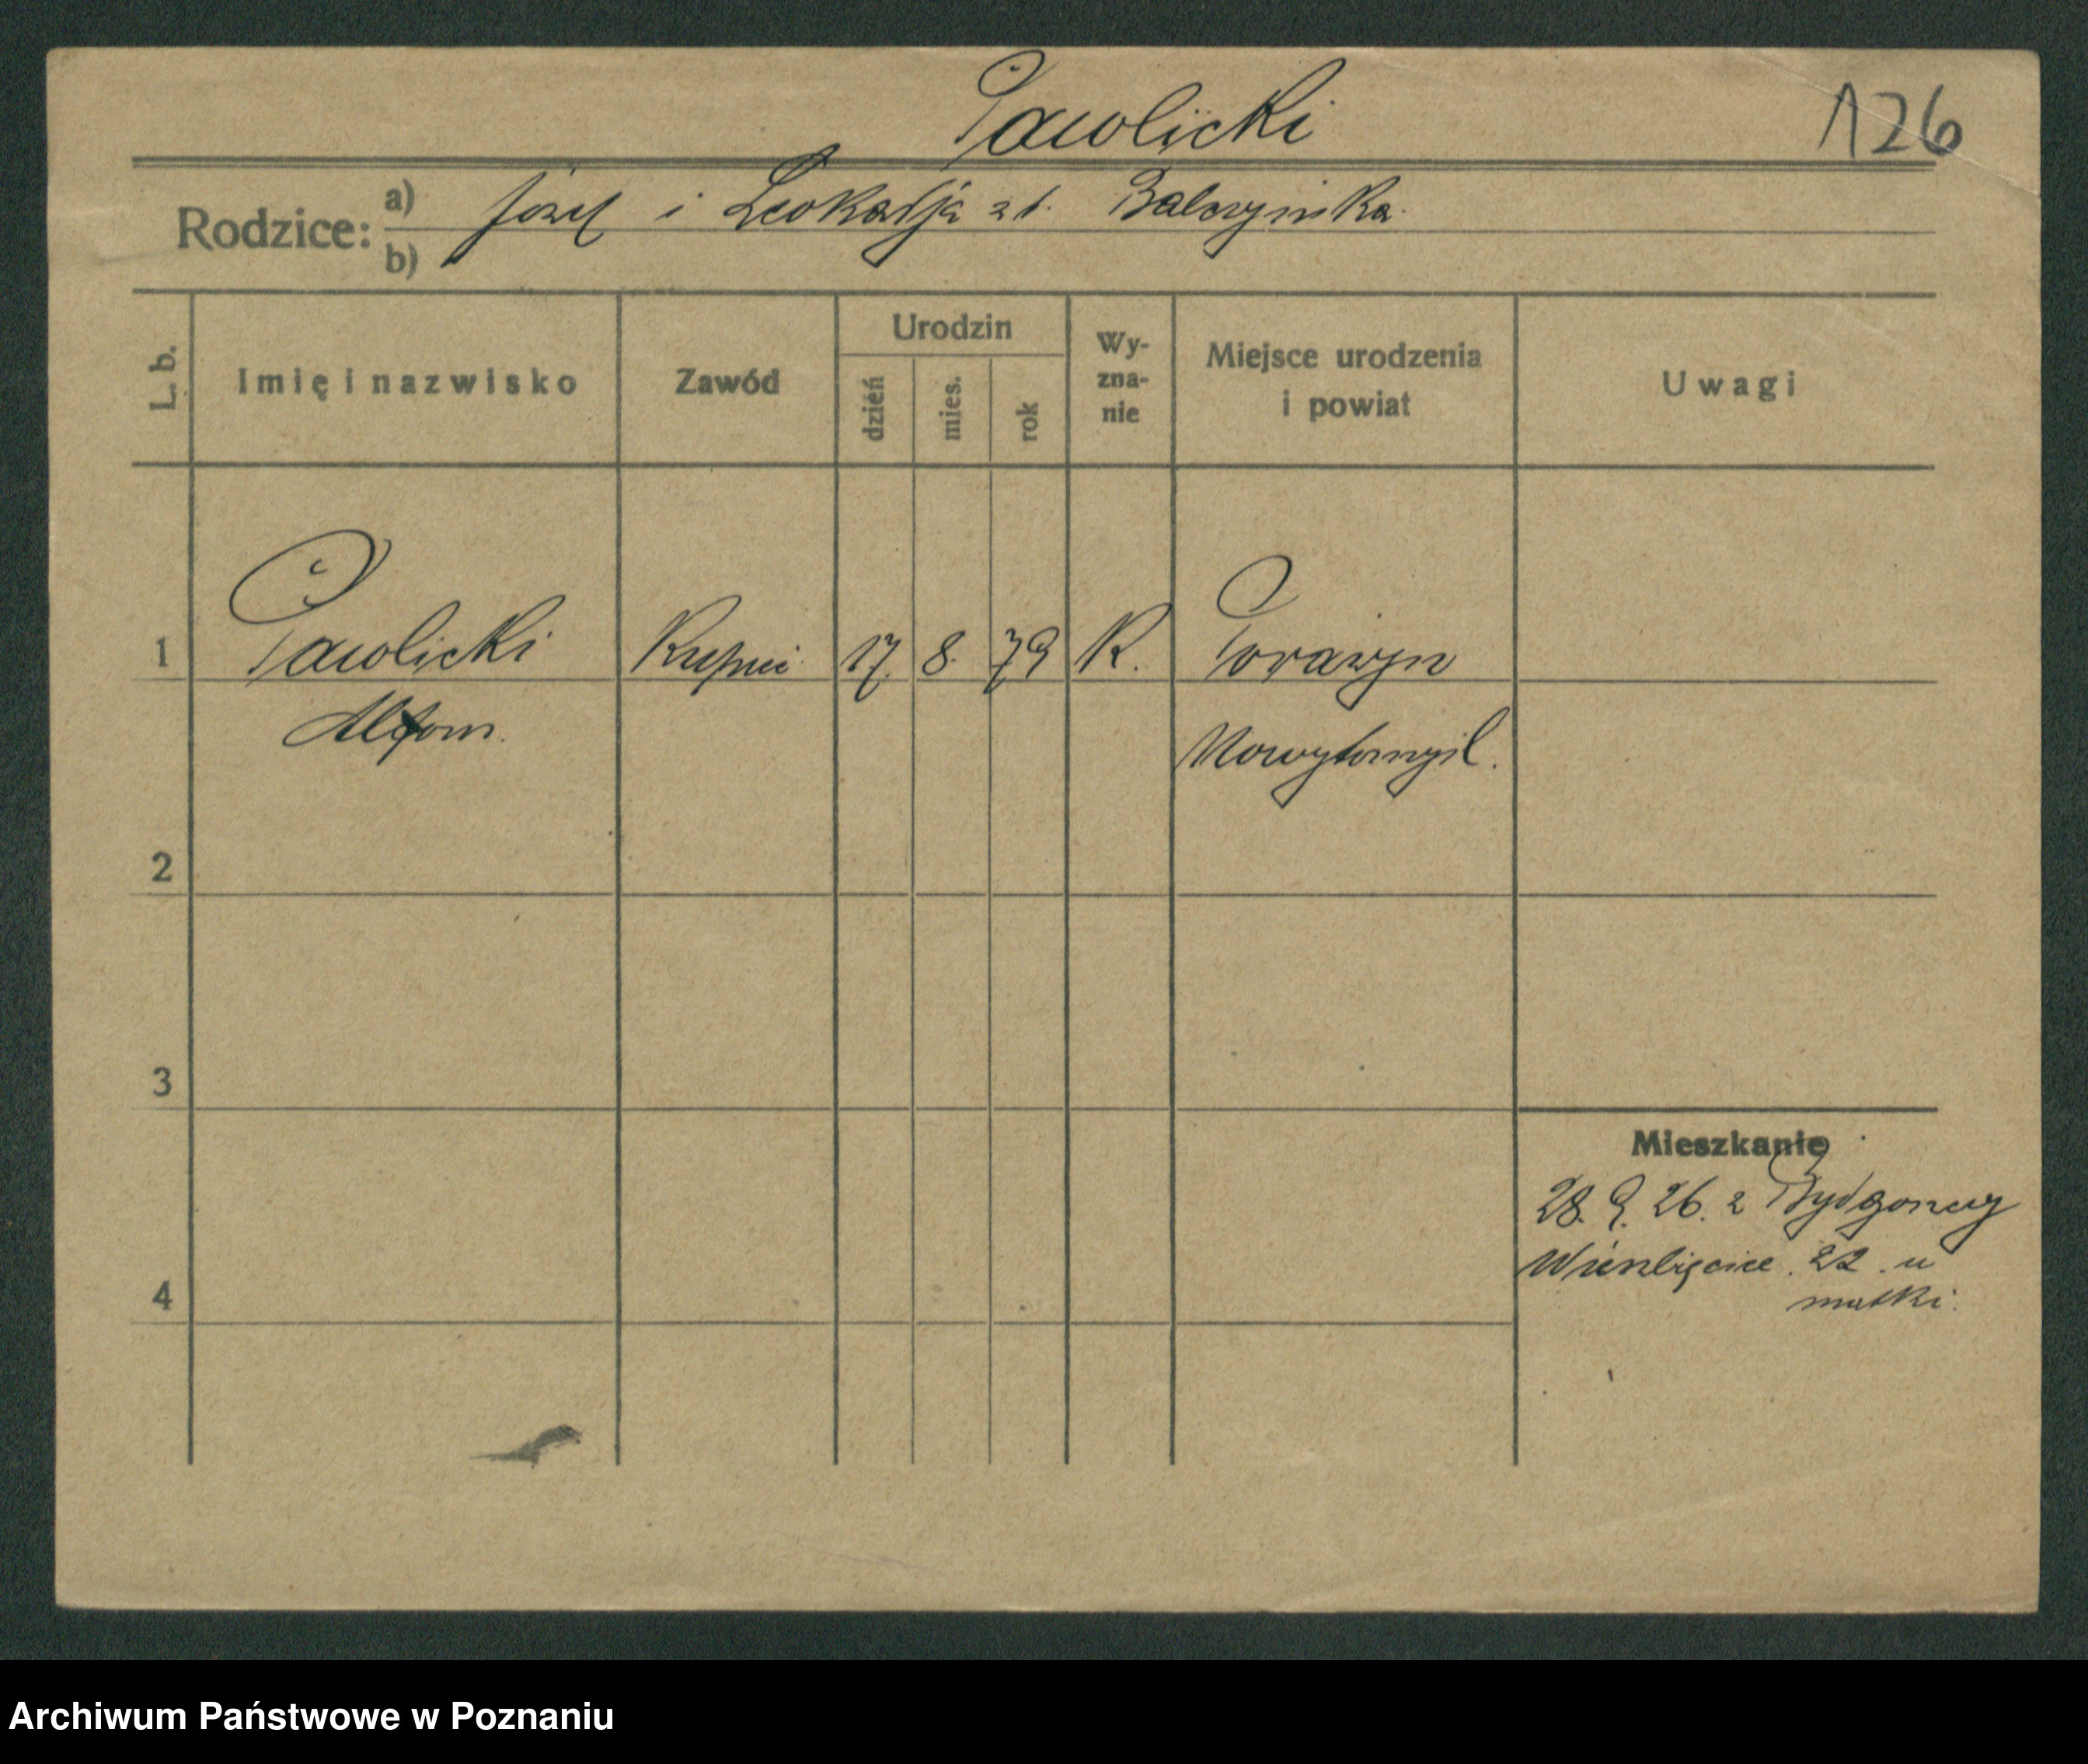 Pawlicki
126
Rodzice: a) Józef i Leokadja z d. Balczyńska.
b)
L. b. Imię i nazwisko Zawód Urodzin dzień mies. rok Wy-zna-nie Miejsce urodzenia i powiat Uwagi
1 Pawlicki Kupiec 17. 8. 79 K. Porażyn
Alfons. Nowytomyśl.
2
3
Mieszkanie
28. 9. 26. z Bydgoszczy
22. u
4
matki.
Archiwum Państwowe w Poznaniu